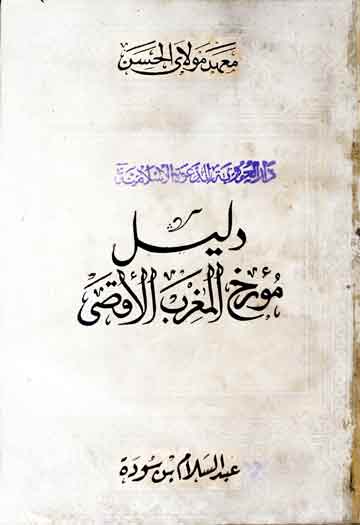 معهد مولاي الحسن
دار العزيزية للدعوة الإسلامية
دليل
مؤرخ المغرب الأقصى
عبد السلام بن سودة